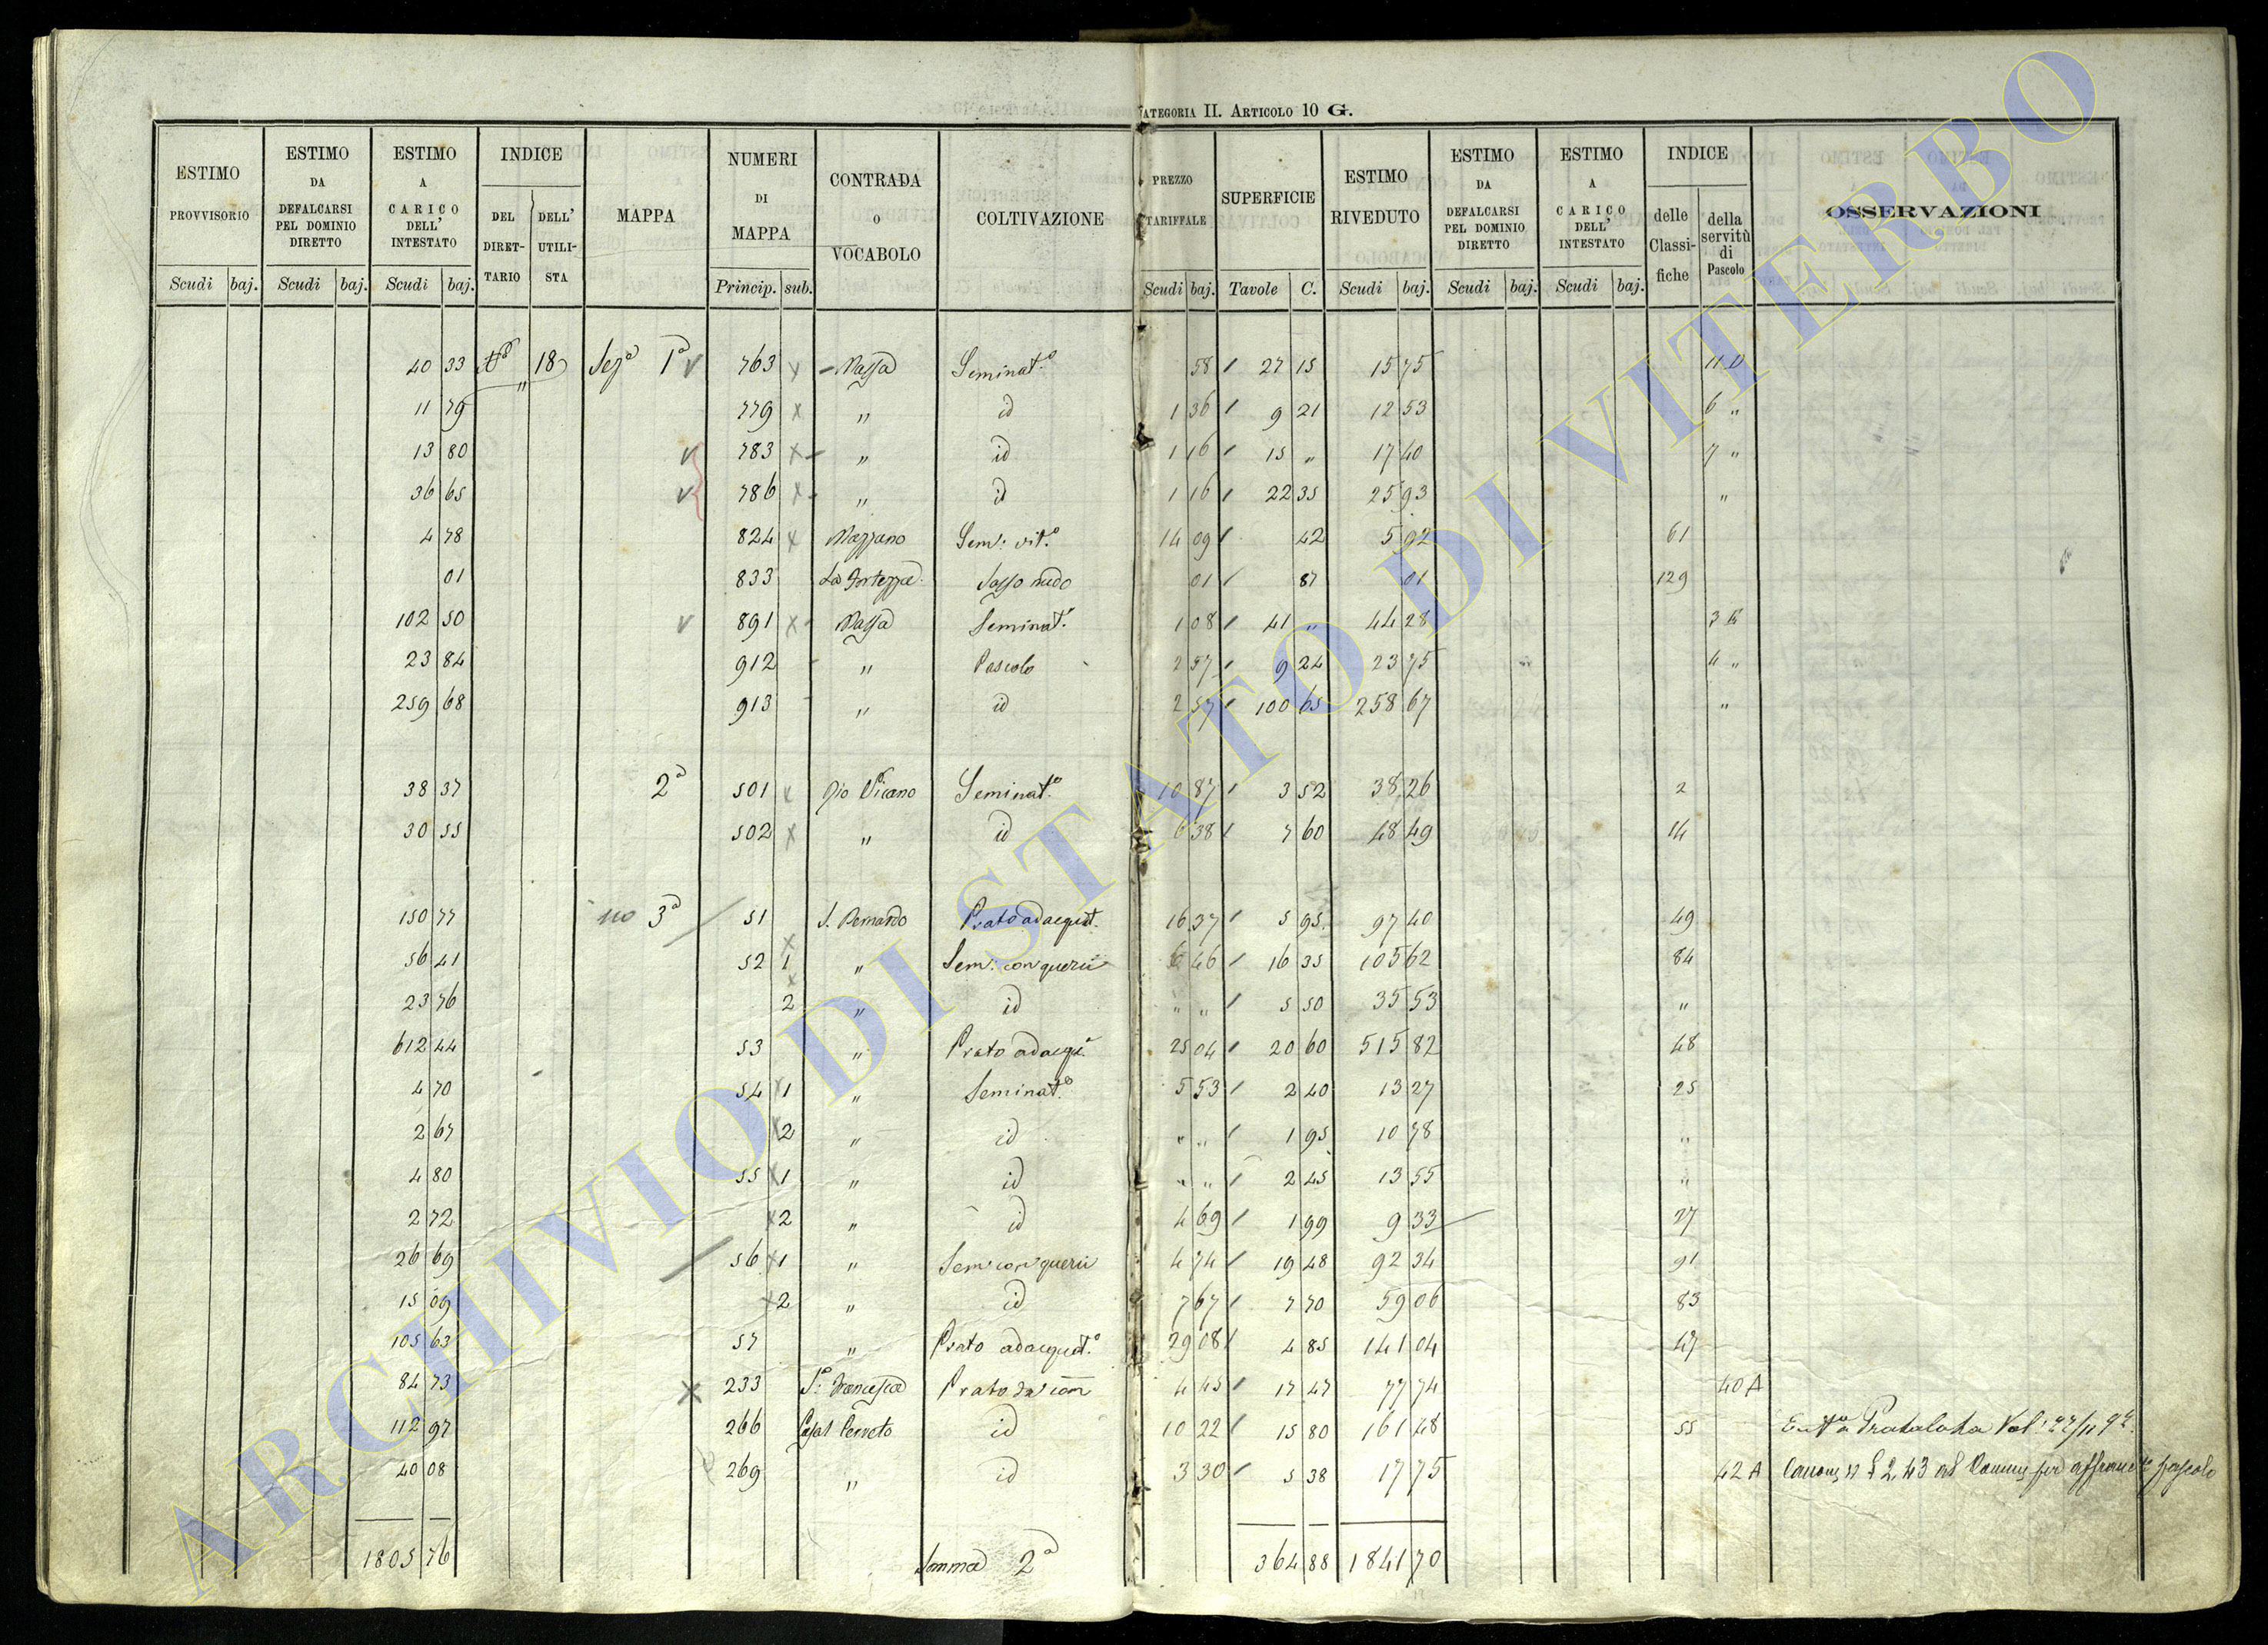 ATEGORIA II. ARTICOLO 10 G.
ESTIMO PROVVISORIO ESTIMO DA DEFALCARSI PEL DOMINIO DIRETTO ESTIMO A CARICO DELL' INTESTATO INDICE DEL DIRET- TARIO DELL' UTILI- STA MAPPA NUMERI DI MAPPA CONTRADA O VOCABOLO COLTIVAZIONE PREZZO TARIFFALE SUPERFICIE ESTIMO RIVEDUTO ESTIMO DA DEFALCARSI PEL DOMINIO DIRETTO ESTIMO A CARICO DELL' INTESTATO INDICE delle Classi- fiche della servitù di Pascolo OSSERVAZIONI
Scudi baj. Scudi baj. Scudi baj. Princip. sub. Scudi baj. Tavole C. Scudi baj. Scudi baj. Scudi baj.
40 33 18 Sezª 1ª 763 Massa Seminatº 58 27 15 15 75 11 D
11 79 " 779 " id 1 36 9 21 12 53 6 "
13 80 783 " id 1 16 15 " 17 40 7 "
36 65 786 " id 1 16 22 35 25 93 "
4 78 824 Mazzano Sem: vit.º 14 09 42 5 92 61
01 833 La Fortezza Sasso nudo 01 87 01 129
102 50 891 Massa Seminat.º 1 08 41 " 44 28 3
23 84 912 " Pascolo 2 57 9 24 23 75 4 "
259 68 913 " id 2 57 100 65 258 67 "
38 37 2ª 501 Rio Vicano Seminat.º 10 87 3 52 38 26 2
30 55 502 " id 6 38 7 60 48 49 14
150 77 no 3ª 51 S. Bernardo Prato adacquat. 16 37 5 95 97 40 49
56 41 52 1 " Sem: con querci 6 46 16 35 105 62 84
23 76 2 " id " " 5 50 35 53 "
612 44 53 " Prato adacqu.º 25 04 20 60 515 82 48
4 70 54 1 " Seminat.º 5 53 2 40 13 27 25
2 67 2 " id " " 1 95 10 78 "
4 80 55 1 " id " " 2 45 13 55 "
2 72 2 " id 4 69 1 99 9 33 27
26 69 56 1 " Sem con querci 4 74 19 48 92 34 91
15 09 2 " id 7 67 7 70 59 06 83
105 63 57 " Prato adacquat.º 29 08 4 85 141 04 47
84 73 233 S.ª Francesca Prato 4 45 17 47 77 74 40 A
112 97 266 Casal Cerreto id 10 22 15 80 161 48 55
40 08 269 " id 3 30 5 38 17 75 42 A
1805 76 Somma 2ª 364 88 1841 70
ARCHIVIO DI STATO DI VITERBO